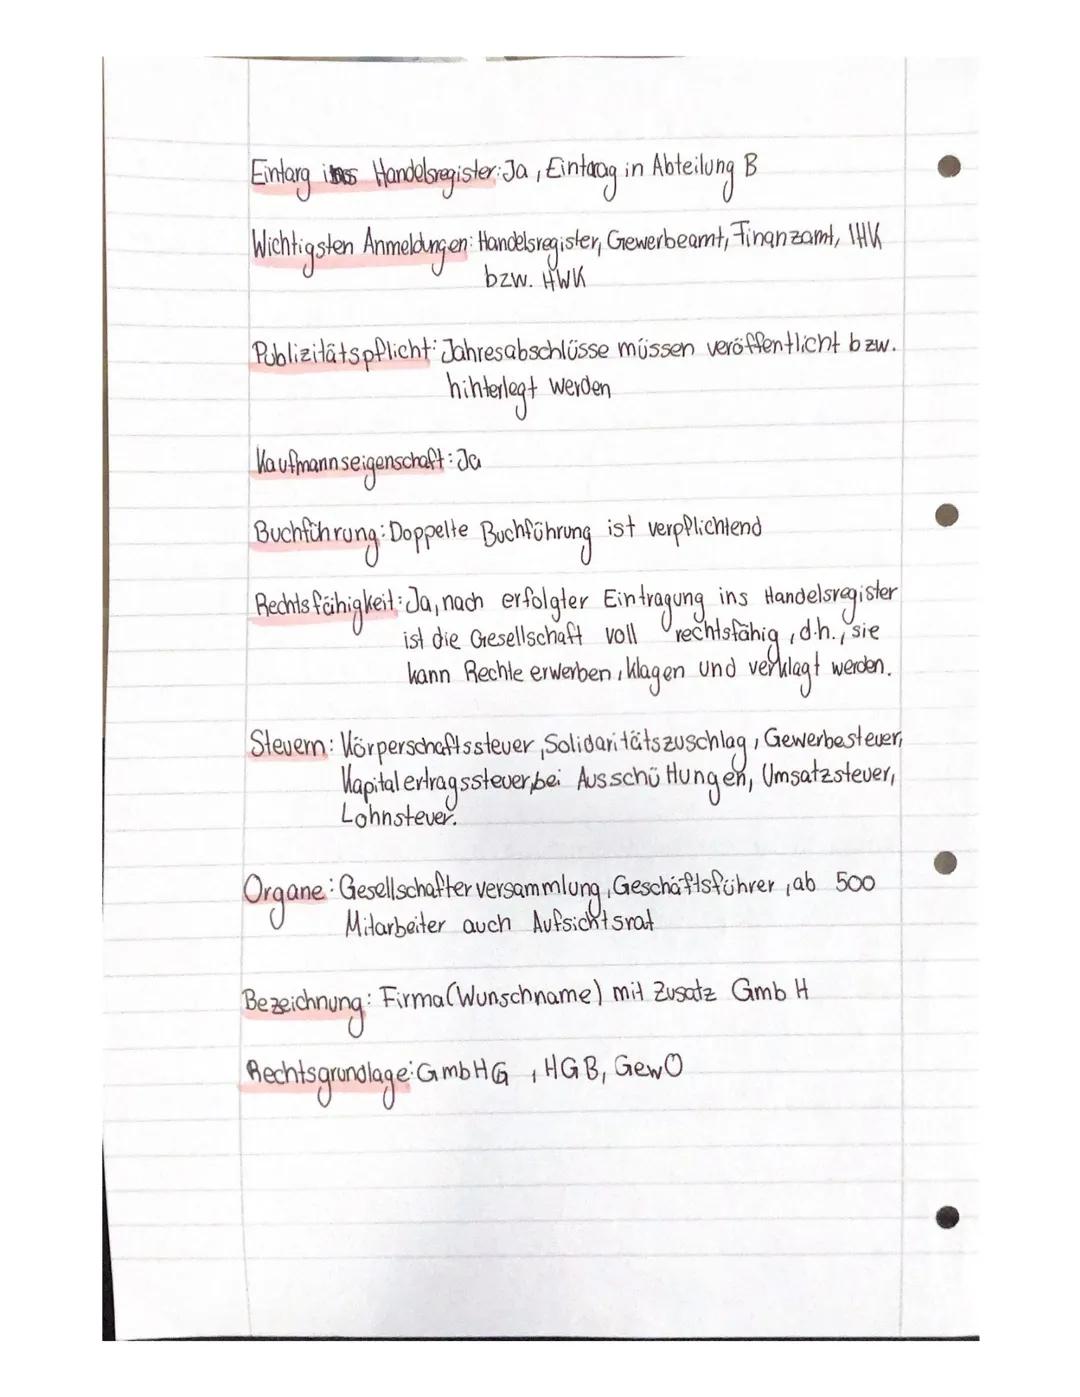 Eintarg ins Handelsregister: Ja, Eintarag in Abteilung B
Wichtigsten Anmeldungen: Handelsregister, Gewerbeamt, Finanzamt, IHK
bzw. HWK
Publizitätspflicht: Jahresabschlüsse müssen veröffentlicht bzw.
hinterlegt werden
Kaufmannseigenschaft: Ja
Buchführung: Doppelte Buchführung ist verpflichtend
Rechtsfähigkeit: Ja, nach erfolgter Eintragung ins Handelsregister
ist die Gesellschaft voll rechtsfähig, d.h., sie
kann Rechte erwerben, klagen und verklagt werden.
Steuern: Körperschaftssteuer, Solidaritätszuschlag, Gewerbesteuer,
Kapitalertragssteuer, bei Ausschüttungen, Umsatzsteuer,
Lohnsteuer.
Organe: Gesellschafterversammlung, Geschäftsführer, ab 500
Mitarbeiter auch Aufsichtsrat
Bezeichnung: Firma (Wunschname) mit Zusatz GmbH
Rechtsgrundlage: GmbHG, HGB, GewO